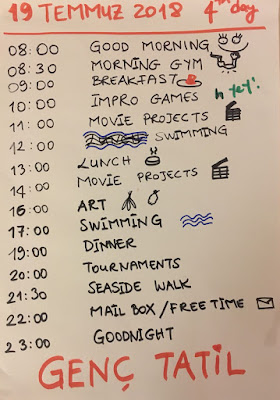 19 TEMMUZ 2018 4th day
08:00 GOOD MORNING
08:30 MORNING GYM
09:00 BREAKFAST
10:00 IMPRO GAMES
11:00 MOVIE PROJECTS
12:00 SWIMMING
13:00 LUNCH
14:00 MOVIE PROJECTS
16:00 ART
17:00 SWIMMING
19:00 DINNER
20:00 TOURNAMENTS
21:30 SEASIDE WALK
22:00 MAIL BOX / FREE TIME
23:00 GOODNIGHT
GENÇ TATİL